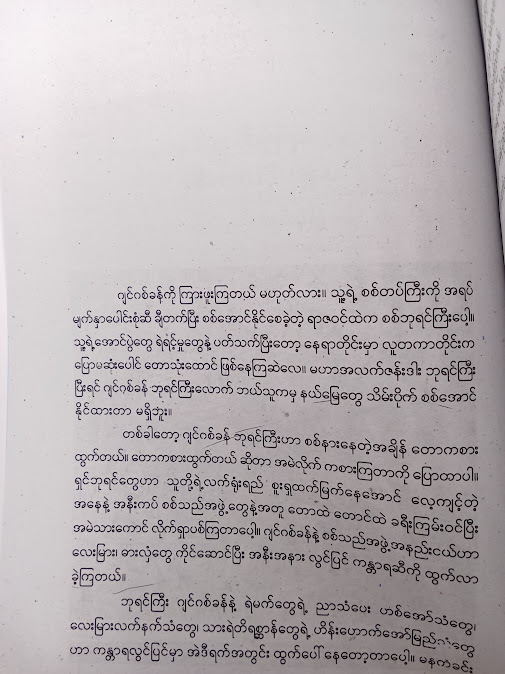 ဂျင်ဂစ်ခန်ကို ကြားဖူးကြတယ် မဟုတ်လား။ သူ့ရဲ့ စစ်တပ်ကြီးကို အရပ်
မျက်နှာပေါင်းစုံဆီ ချီတက်ပြီး စစ်အောင်နိုင်စေခဲ့တဲ့ ရာဇဝင်ထဲက စစ်ဘုရင်ကြီးပေါ့။
သူ့ရဲ့အောင်ပွဲတွေ ရဲရင့်မှုတွေနဲ့ ပတ်သက်ပြီးတော့ နေရာတိုင်းမှာ လူတကာတိုင်းက
ပြောမဆုံးပေါင် တောသုံးထောင် ဖြစ်နေကြဆဲလေ။ မဟာအလက်ဇန်းဒါး ဘုရင်ကြီး
ပြီးရင် ဂျင်ဂစ်ခန် ဘုရင်ကြီးလောက် ဘယ်သူကမှ နယ်မြေတွေ သိမ်းပိုက် စစ်အောင်
နိုင်ထားတာ မရှိဘူး။
တစ်ခါတော့ ဂျင်ဂစ်ခန် ဘုရင်ကြီးဟာ စစ်နားနေတဲ့အချိန် တောကစား
ထွက်တယ်။ တောကစားထွက်တယ် ဆိုတာ အမဲလိုက် ကစားကြတာကို ပြောတာပါ။
ရှင်ဘုရင်တွေဟာ သူတို့ရဲ့လက်ရုံးရည် စူးရှထက်မြက်နေအောင် လေ့ကျင့်တဲ့
အနေနဲ့ အနီးကပ် စစ်သည်အဖွဲ့တွေနဲ့အတူ တောထဲ တောင်ထဲ ခရီးကြမ်းဝင်ပြီး
အမဲသားကောင် လိုက်ရှာပစ်ကြတာပေါ့။ ဂျင်ဂစ်ခန်နဲ့ စစ်သည်အဖွဲ့အနည်းငယ်ဟာ
လေးမြား၊ ဓားလှံတွေ ကိုင်ဆောင်ပြီး အနီးအနား လွင်ပြင် ကန္တာရဆီကို ထွက်လာ
ခဲ့ကြတယ်။
ဘုရင်ကြီး ဂျင်ဂစ်ခန်နဲ့ ရဲမက်တွေရဲ့ ညာသံပေး ဟစ်အော်သံတွေ၊
လေးမြားလက်နက်သံတွေ၊ သားရဲတိရစ္ဆာန်တွေရဲ့ ဟိန်းဟောက်အော်မြည်သံတွေ
ဟာ ကန္တာရလွင်ပြင်မှာ အဲဒီရက်အတွင်း ထွက်ပေါ် နေတော့တာပေါ့။